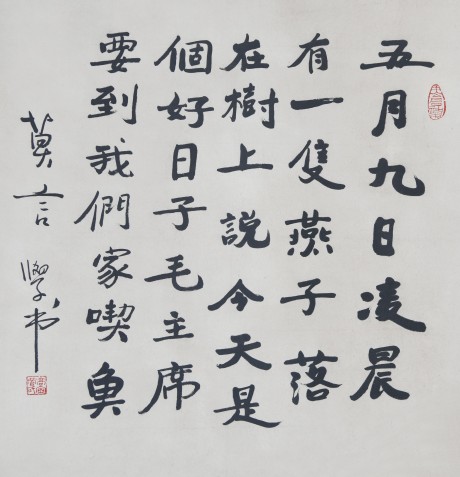 五月九日凌晨
有一隻燕子落
在樹上說今天是
個好日子毛主席
要到我們家喫魚
莫言书